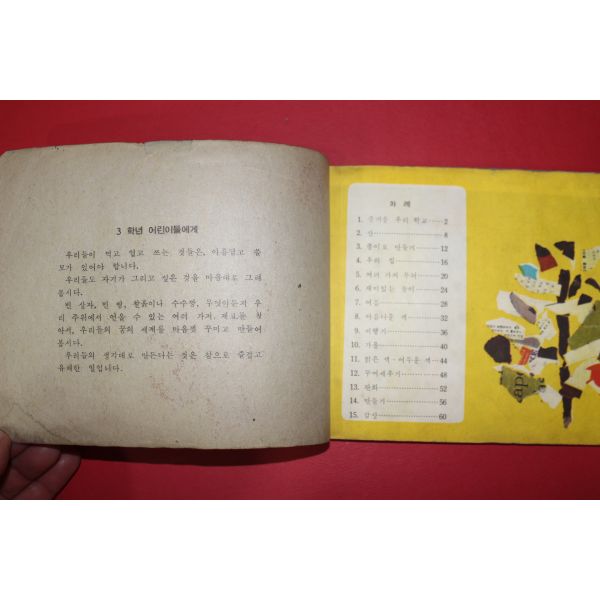 3 학년 어린이들에게
우리들이 먹고 입고 쓰는 것들은, 아름답고 쓸
모가 있어야 합니다.
우리들도 자기가 그리고 싶은 것을 마음대로 그려
봅시다.
빈 상자, 빈 병, 찰흙이나 수수깡, 무엇이든지 우
리 주위에서 얻을 수 있는 여러 가지 재료를 찾
아서, 우리들의 꿈의 세계를 마음껏 꾸미고 만들어
봅시다.
우리들의 생각대로 만든다는 것은 참으로 즐겁고
유쾌한 일입니다.
차 례
1. 즐거운 우리 학교 2
2. 산 8
3. 종이로 만들기 12
4. 우리 집 16
5. 여러 가지 무늬 20
6. 재미있는 놀이 24
7. 여름 28
8. 아름다운 색 32
9. 비행기 36
10. 가을 40
11. 밝은 색·어두운 색 44
12. 꾸며세우기 48
13. 판화 52
14. 만들기 56
15. 감상 60
ape